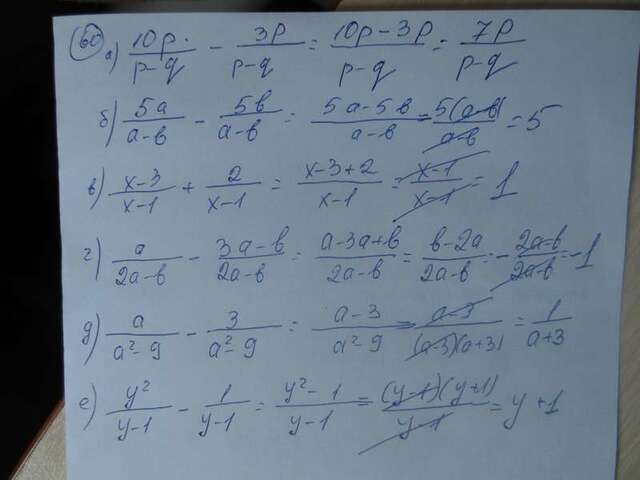 60 а) 10p/(p-q) - 3p/(p-q) = (10p-3p)/(p-q) = 7p/(p-q)
б) 5a/(a-b) - 5b/(a-b) = (5a-5b)/(a-b) = 5(a-b)/(a-b) = 5
в) (x-3)/(x-1) + 2/(x-1) = (x-3+2)/(x-1) = (x-1)/(x-1) = 1
г) a/(2a-b) - (3a-b)/(2a-b) = (a-3a+b)/(2a-b) = (b-2a)/(2a-b) = -(2a-b)/(2a-b) = -1
д) a/(a²-9) - 3/(a²-9) = (a-3)/(a²-9) = (a-3)/((a-3)(a+3)) = 1/(a+3)
е) y²/(y-1) - 1/(y-1) = (y²-1)/(y-1) = (y-1)(y+1)/(y-1) = y+1